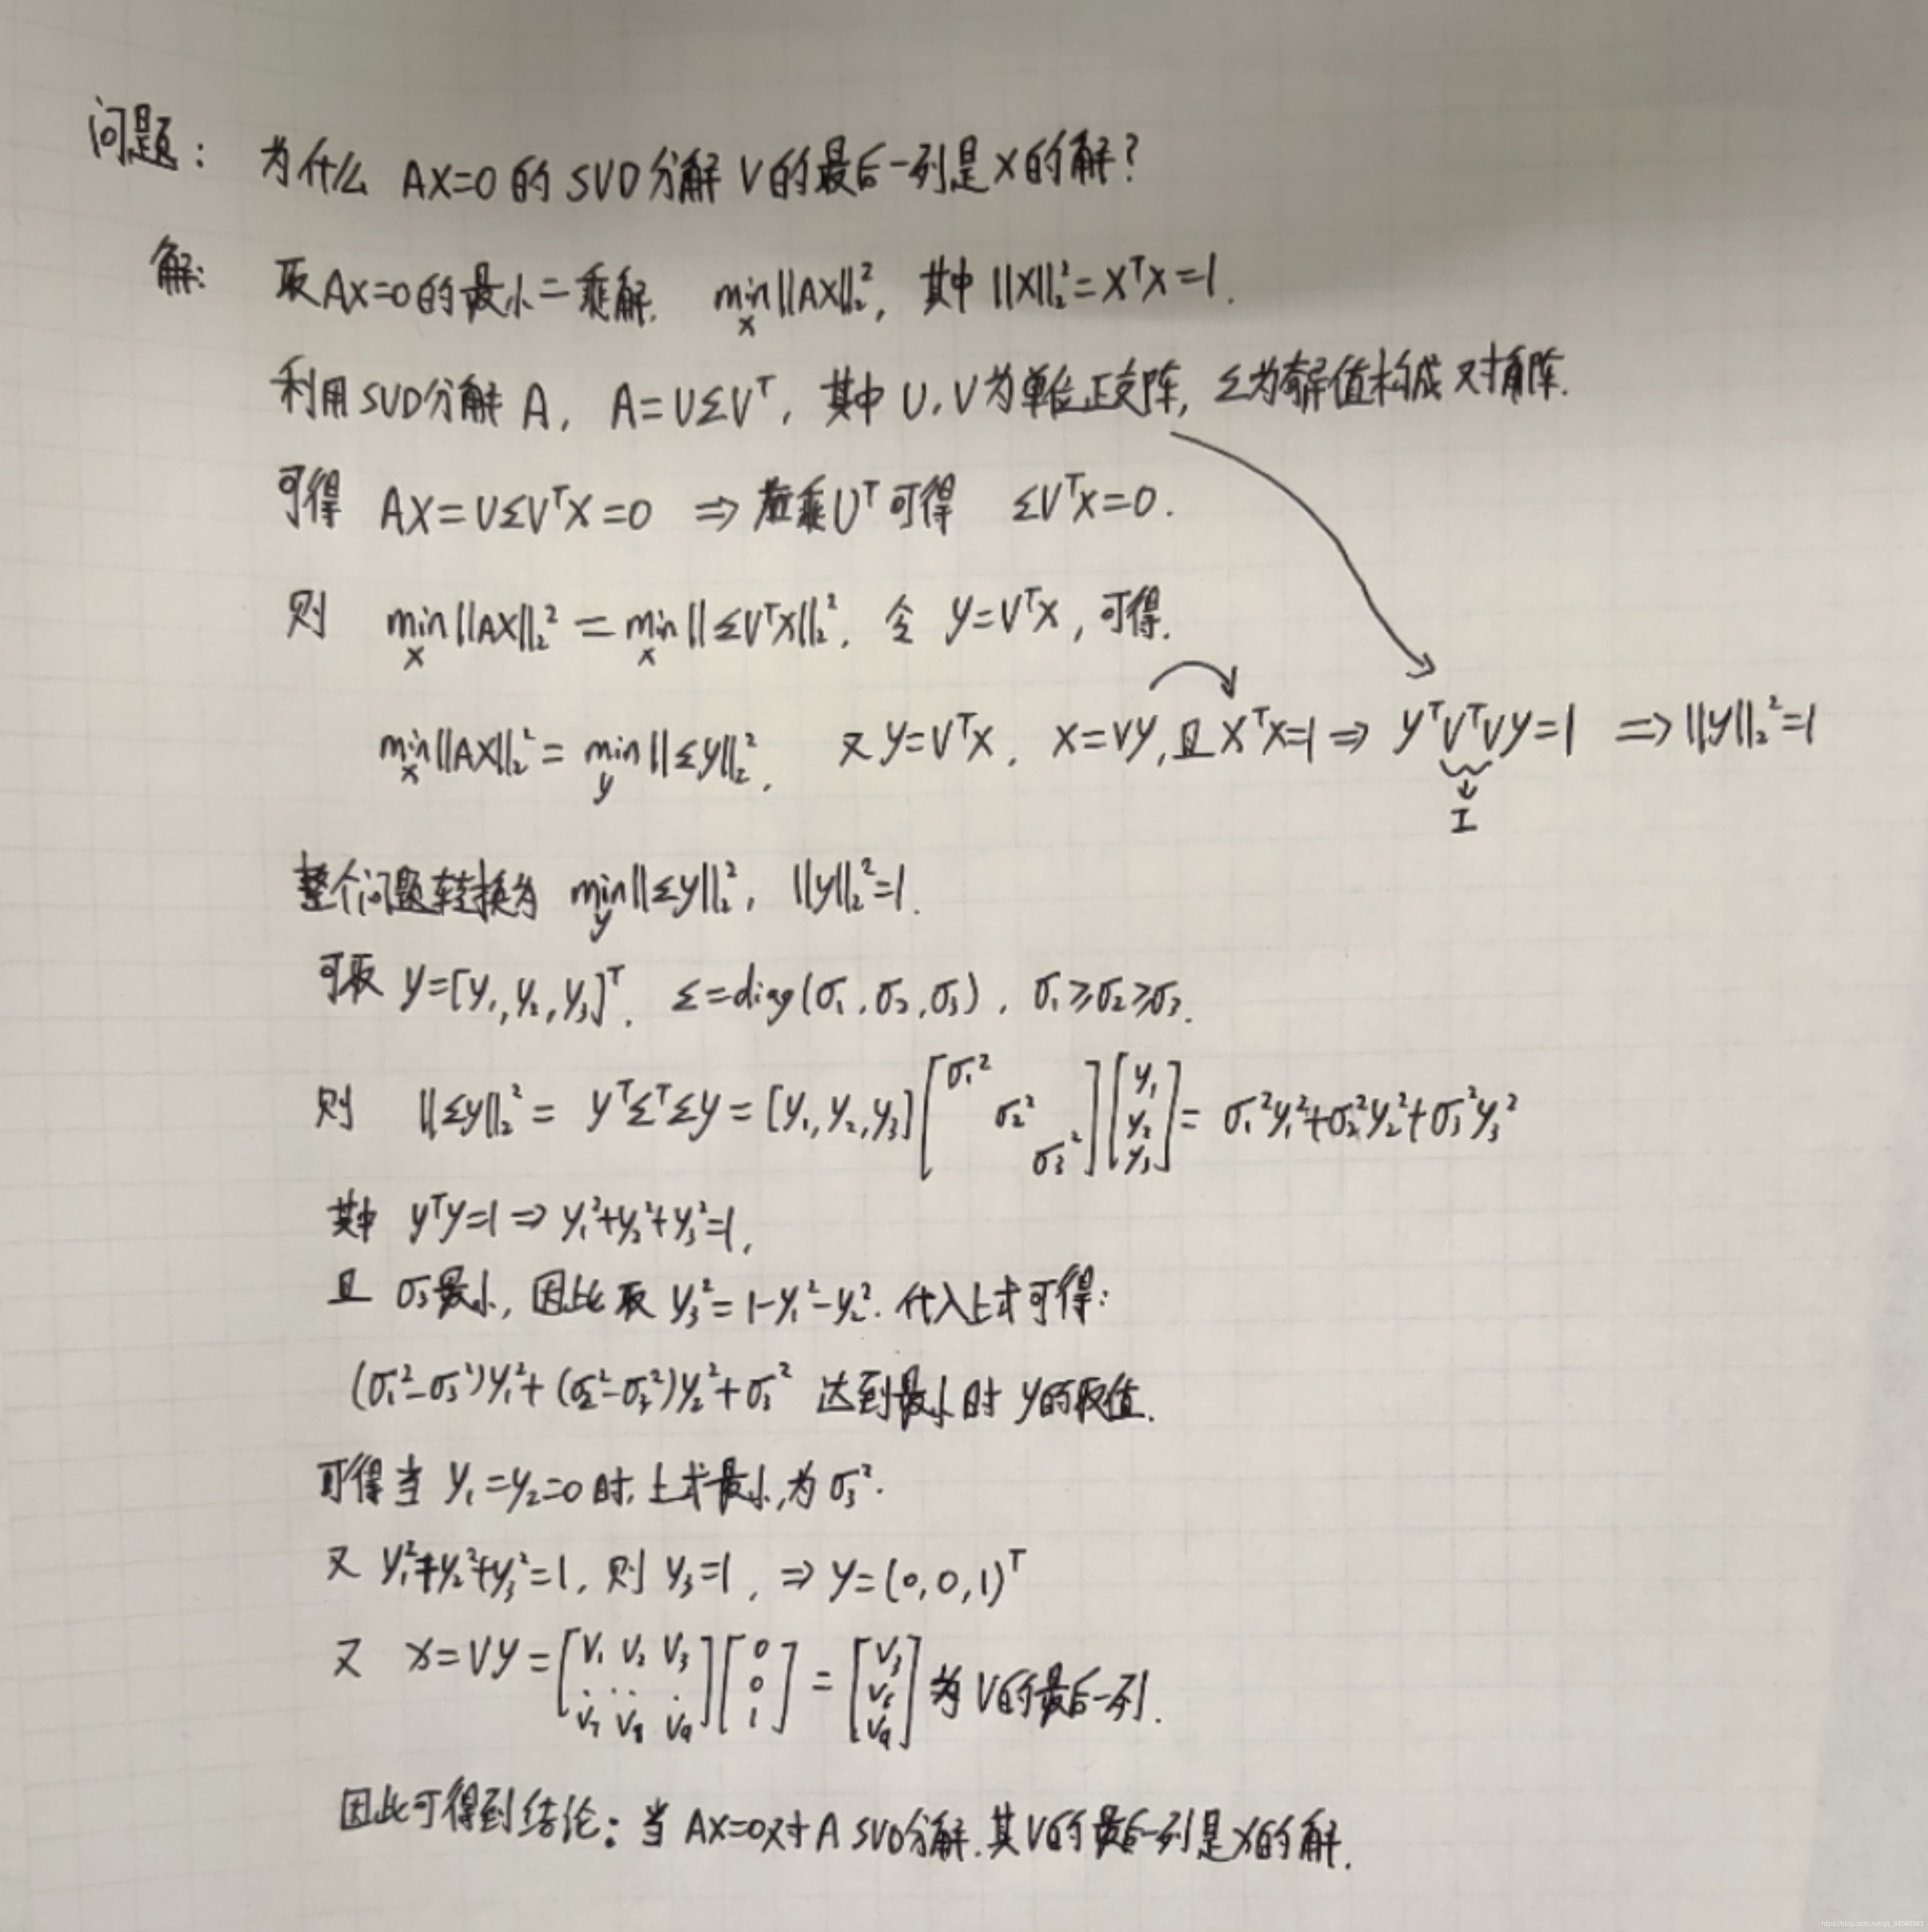 问题: 为什么 AX=0 的 SVD分解 V的最后一列是X的解?
解: 取AX=0的最小二乘解. min_x ||AX||₂², 其中 ||X||₂²=XᵀX=1.
利用SVD分解 A, A=UΣVᵀ, 其中 U, V为单位正交阵, Σ为奇异值构成对角阵.
可得 AX=UΣVᵀX=0 ⇒ 左乘Uᵀ可得 ΣVᵀX=0.
则 min_x ||AX||₂² = min_x ||ΣVᵀX||₂². 令 y=VᵀX, 可得.
min_x ||AX||₂² = min_y ||Σy||₂², 又 y=VᵀX, X=Vy, 且 XᵀX=1 ⇒ yᵀVᵀVy=1 ⇒ ||y||₂²=1
↓
I
整个问题转换为 min_y ||Σy||₂², ||y||₂²=1.
可取 y=[y₁, y₂, y₃]ᵀ, Σ=diag(σ₁, σ₂, σ₃), σ₁≥σ₂≥σ₃.
则 ||Σy||₂² = yᵀΣᵀΣy = [y₁, y₂, y₃] [σ₁² σ₂² σ₃²] [y₁ y₂ y₃] = σ₁²y₁²+σ₂²y₂²+σ₃²y₃²
其中 yᵀy=1 ⇒ y₁²+y₂²+y₃²=1,
且 σ₃最小, 因此取 y₃²=1-y₁²-y₂². 代入上式可得:
(σ₁²-σ₃²)y₁²+(σ₂²-σ₃²)y₂²+σ₃² 达到最小时 y的取值.
可得当 y₁=y₂=0时, 上式最小, 为σ₃².
又 y₁²+y₂²+y₃²=1, 则 y₃=1, ⇒ y=(0, 0, 1)ᵀ
又 X=Vy= [V₁ V₂ V₃ ... V₇ V₈ V₉] [0 0 1] = [V₃ V₆ V₉] 为 V的最后一列.
因此可得到结论: 当 AX=0对A SVD分解. 其V的最后一列是X的解.